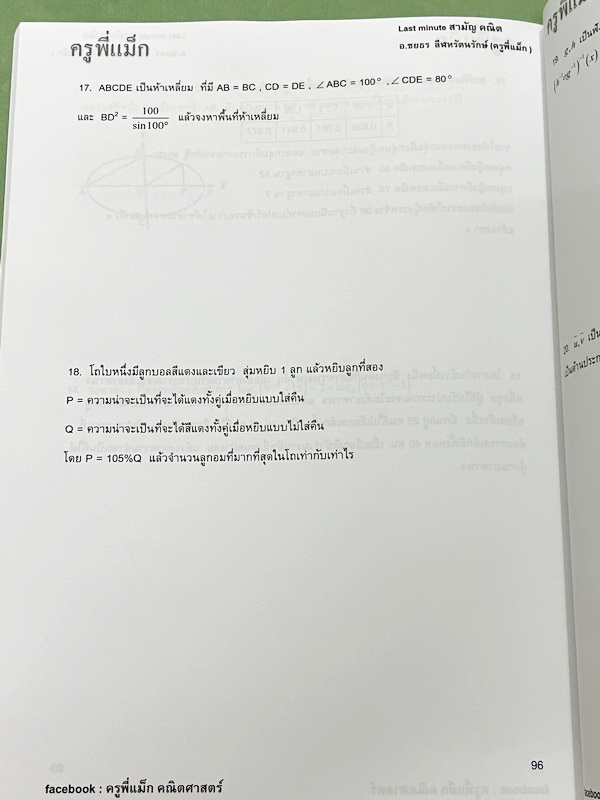 ครูพี่แม็ก
Last minute สามัญ คณิต
อ.ชยธร ลีฬหรัตนรักษ์ (ครูพี่แม็ก)
17. ABCDE เป็นห้าเหลี่ยม ที่มี AB = BC , CD = DE , ∠ABC = 100° , ∠CDE = 80°
และ BD² = 100/sin100° แล้วจงหาพื้นที่ห้าเหลี่ยม
18. โถใบหนึ่งมีลูกบอลสีแดงและเขียว สุ่มหยิบ 1 ลูก แล้วหยิบลูกที่สอง
P = ความน่าจะเป็นที่จะได้แดงทั้งคู่เมื่อหยิบแบบใส่คืน
Q = ความน่าจะเป็นที่จะได้สีแดงทั้งคู่เมื่อหยิบแบบไม่ใส่คืน
โดย P = 105%Q แล้วจำนวนลูกอมที่มากที่สุดในโถเท่ากับเท่าไร
96
facebook : ครูพี่แม็ก คณิตศาสตร์